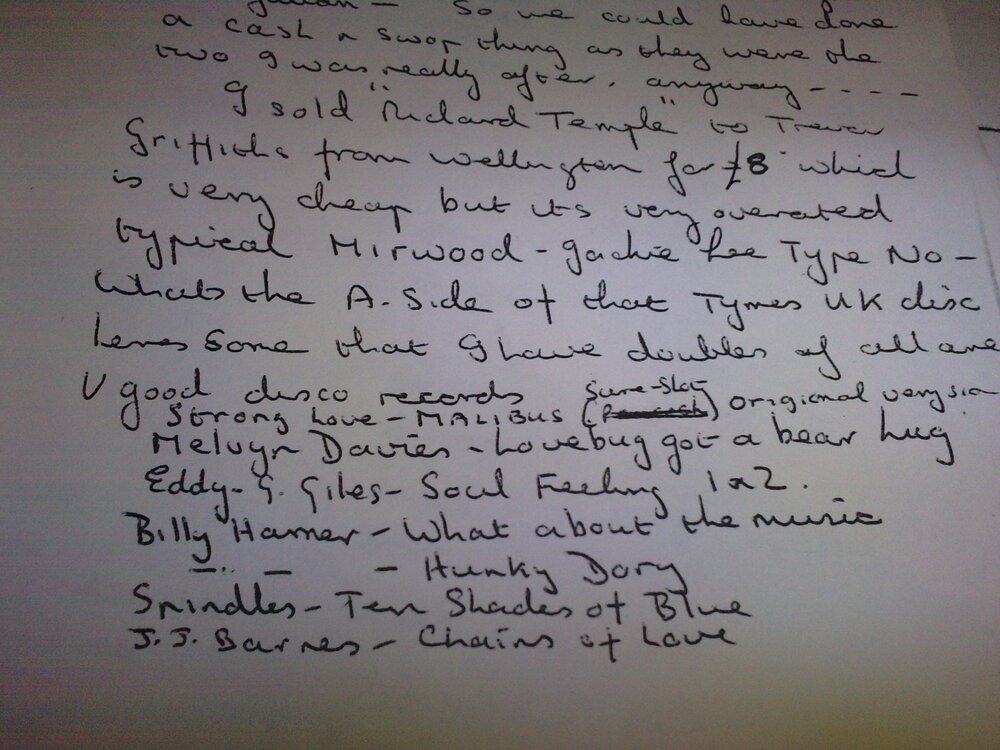 So we could have done
a cash n swop thing as they were the
two I was really after. anyway - - - -
I sold "Richard Temple" to Trevor
Griffiths from Wellington for £8 which
is very cheap but its very overated
typical Mirwood - Jackie Lee Type No -
Whats the A. Side of that Tymes UK disc
heres some that I have doubles of all are
V good disco records
Strong Love - MALIBUS (Sure-Shot) original version
Melvyn Davies - Lovebug got a bear hug
Eddy - G. Giles - Soul Feeling 1 n 2.
Billy Harner - What about the music
- Hunky Dory
Spindles - Ten Shades of Blue
J. J. Barnes - Chains of Love